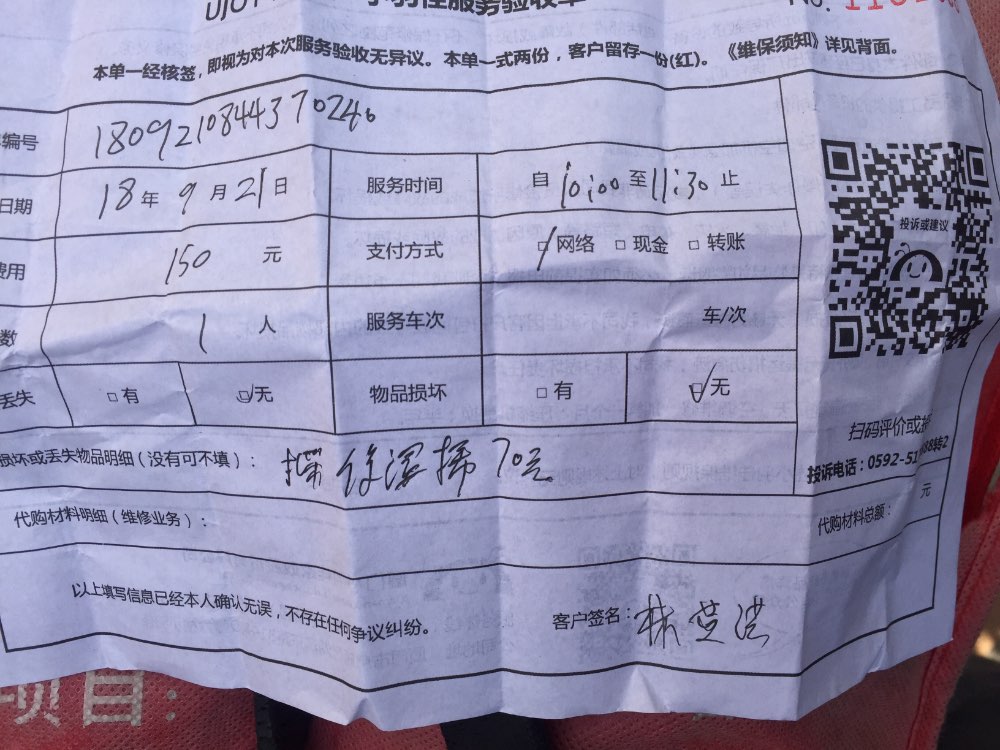 性服务验收单 No.
本单一经核签，即视为对本次服务验收无异议。本单一式两份，客户留存一份(红)。《维保须知》详见背面。
编号 1809210844370240
日期 18年9月21日 服务时间 自10:00至11:30止
费用 150元 支付方式 网络 现金 转账
投诉或建议
数 1人 服务车次 车/次
丢失 有 无 物品损坏 有 无
扫码评价或
投诉电话：0592-51 88转2
损坏或丢失物品明细（没有可不填）： 70元
代购材料明细（维修业务）： 代购材料总额： 元
以上填写信息已经本人确认无误，不存在任何争议纠纷。 客户签名：林
项目：